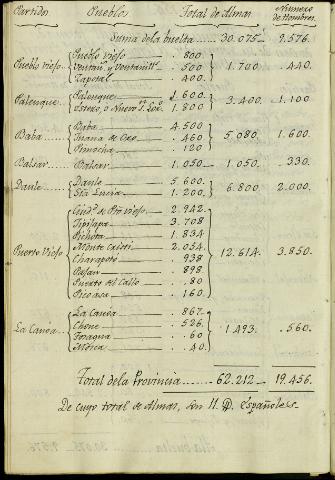 Partidos Pueblos Total de Almas Número de Hombres.
Suma dela buelta 30.075 9.576.
Pueblo Viejo . 800
Pueblo Viejo 500 1.700 . 440.
Zapotal . 400.
Palenque 1.600
Palenque Estero, o Nuevo 1.800 3.400. 1.100
Baba 4.500
Baba . 460 5.080. 1.600.
Pimocha . 120
Balsar Balsar 1.050 1.050 . 330.
Daule Daule 5.600
Sta Lucia 1.200 6.800 2.000.
Ciud.d de Pto viejo 2.942.
Tipijapa 3.708
Pichota 1.834
Puerto Viejo Monte Cristi 2.054 12.614. 3.850.
Charapoto 938
Pasan 898
Puerto del Callo . 80
Picoasa . 160.
La Canoa . 867.
La Canoa Chone . 526. 1.493. . 560.
Tosagua . 60
Mosca . 40.
Total dela Provincia 62.212 19.456.
De cuyo total de Almas, son 11. Españoles.